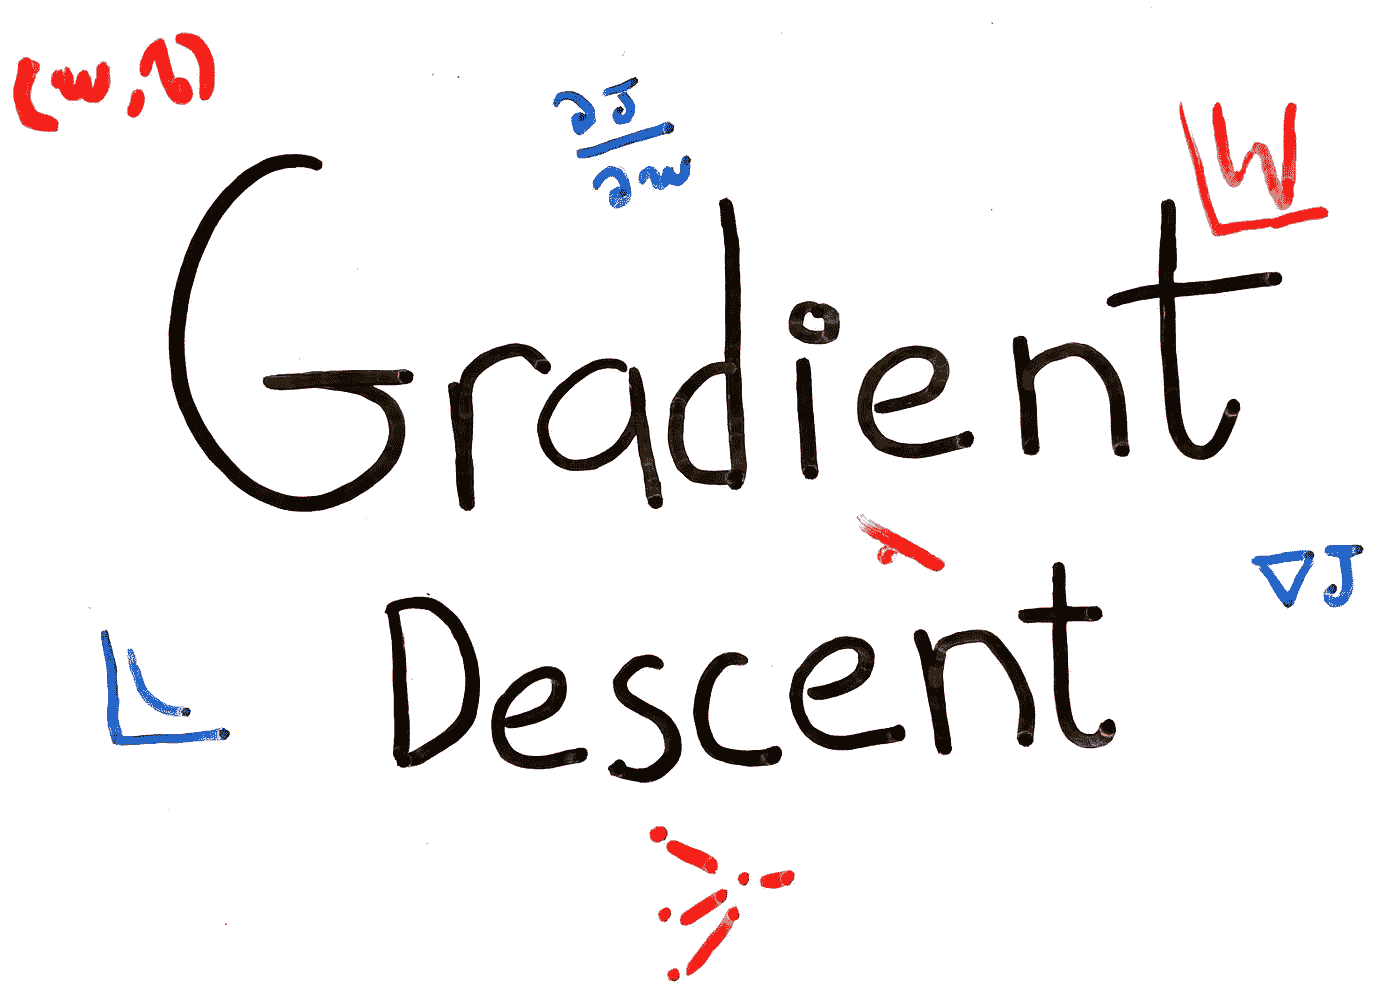 (w,b)
∂J
∂w
W
Gradient
∇J
Descent